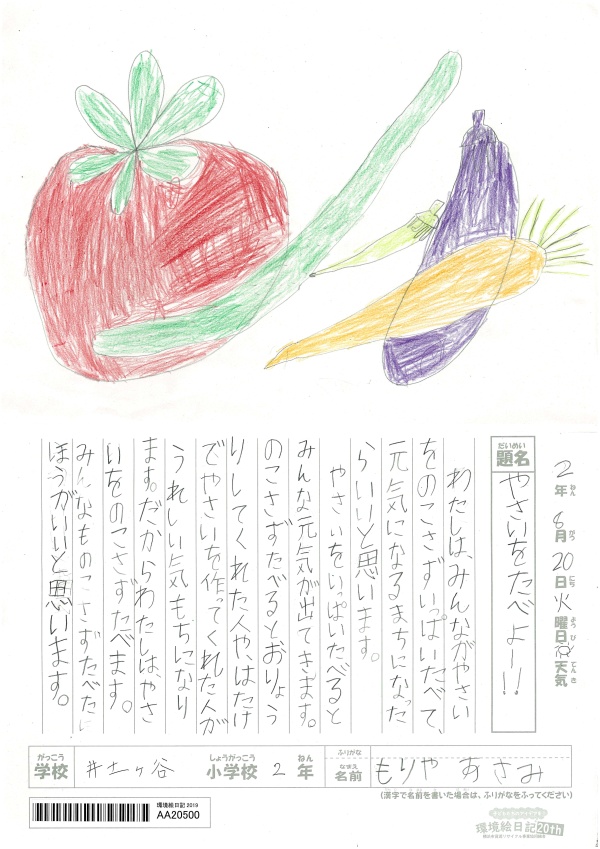 2年ねん8月がつ20日にち火曜日ようび天気てんき
題名だいめい
やさいをたべよー!!
わたしは、みんながやさい
をのこさずいっぱいたべて、
元気になるまちになった
らいいと思います。
やさいをいっぱいたべると
みんな元気が出てきます。
のこさずたべるとおりょう
りしてくれた人や、はたけ
でやさいを作ってくれた人が
うれしい気もちになり
ます。だからわたしは、やさ
いをのこさずたべます。
みんなものこさずたべた
ほうがいいと思います。
学校がっこう 井土ヶ谷 小学校しょうがっこう 2 年ねん
ふりがな
名前なまえ もりや あさみ
(漢字で名前を書いた場合は、ふりがなをふってください)
環境絵日記 2019
AA20500
環境絵日記 20th